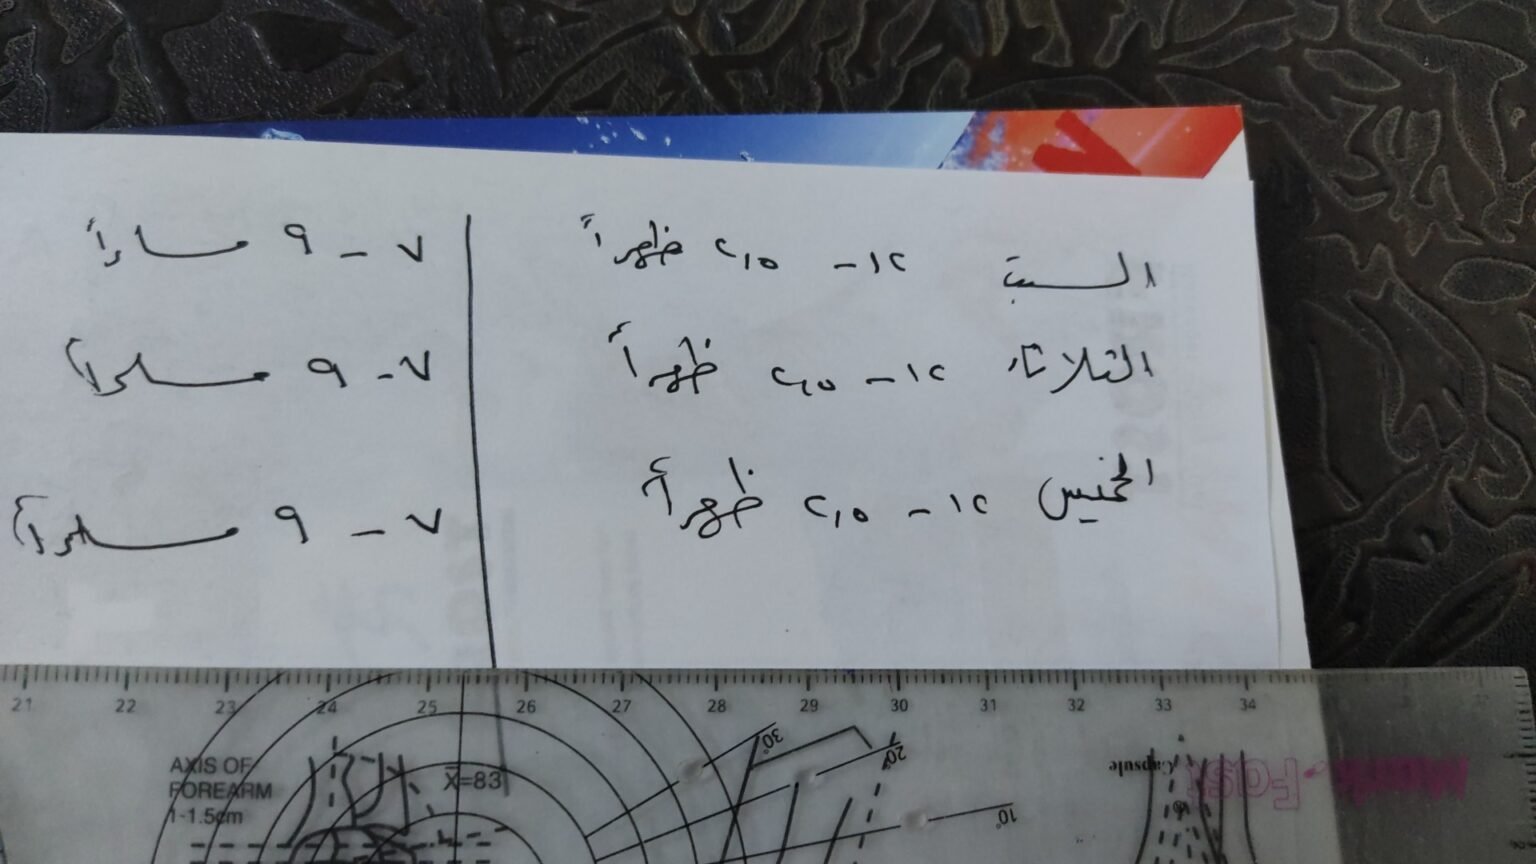 السبت ١٢ - ٢,١٥ ظهراً ٧ - ٩ مساءاً
الثلاثاء ١٢ - ٢,١٥ ظهراً ٧ - ٩ مساءاً
الخميس ١٢ - ٢,١٥ ظهراً ٧ - ٩ مساءاً
21 22 23 24 25 26 27 28 29 30 31 32 33 34
AXIS OF
FOREARM
1-1.5cm
X=83
30°
20°
10°
Capsule